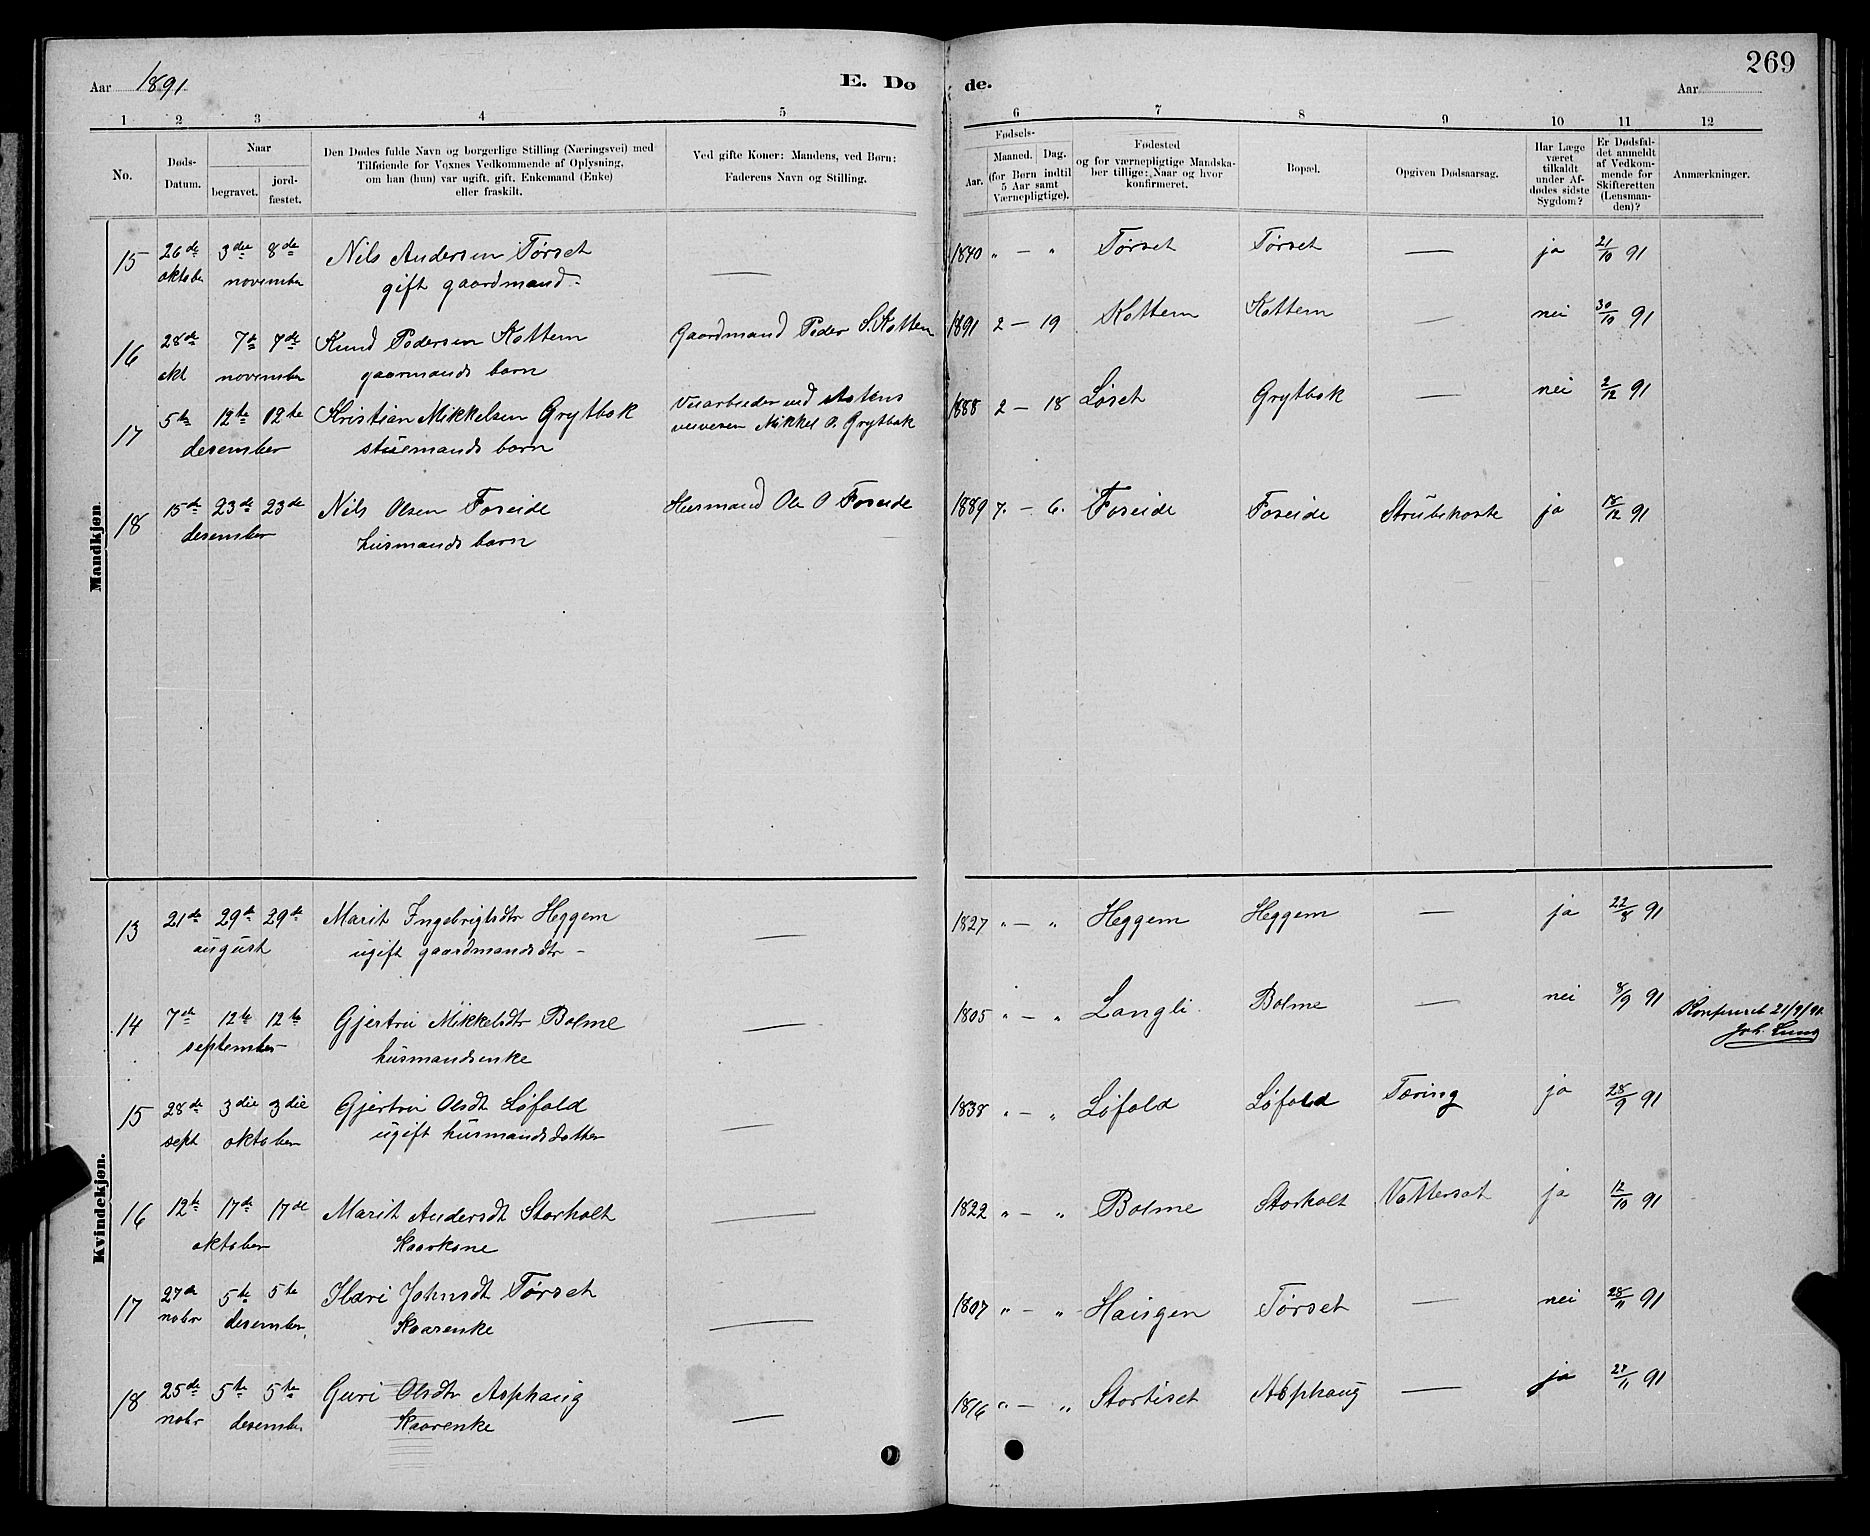 269
Aar 1891.
E. Dø de.
Aar
1 2 3 4 5 6 7 8 9 10 11 12
No.
Døds-
Datum.
Naar
begravet.
jord-
fæstet.
Den Dødes fulde Navn og borgerlige Stilling (Næringsvei) med
Tilføiende for Voxnes Vedkommende af Oplysning,
om han (hun) var ugift, gift, Enkemand (Enke)
eller fraskilt.
Ved gifte Koner: Mandens, ved Børn:
Faderens Navn og Stilling.
Fødsels-
Aar.
Maaned. Dag.
(for Børn indtil
5 Aar samt
Værnepligtige).
Fødested
og for værnepligtige Mandska-
ber tillige: Naar og hvor
konfirmeret.
Bopæl.
Opgiven Dødsaarsag.
Har Læge
været
tilkaldt
under Af-
dødes sidste
Sygdom?
Er Dødsfal-
det anmeldt
af Vedkom-
mende for
Skifteretten
(Lensman-
den)?
Anmærkninger.
Mandkjøn.
15 26de 3die 8de Nils Andersen Tørset — 1840 " — " Tørset Tørset — ja 21/10 91
oktober november gift gaardmand -
16 28de 7de 7de Knud Pedersen Kottem Gaardmand Peder S. Kottem 1891 2 — 19 Kottem Kottem — nei 30/10 91
okt november gaarmands barn
17 5te 12te 12te Kristian Mikkelsen Grytbak Veiarbeider ved statens 1888 2 — 18 Løset Grytbak — nei 2/12 91
desember stuemands barn veivesen Mikkel O. Grytbak
18 15de 23de 23de Nils Olsen Foseide Husmand Ole O Foseide 1889 7. — 6. Foseide Foseide Strubehoste ja 18/12 91
desember husmands barn
Kvindekjøn.
13 21de 29de 29de Marit Ingebrigtsdtr Heggem — 1827 " — " Heggem Heggem — ja 22/8 91
august ugift gaardmandsdtr -
14 7de 12te 12te Gjertru Mikkelsdtr Bolme — 1805 " — " Langli Bolme — nei 8/9 91 Konfereret 21/9/91.
september husmandsenke Joh. Lund
15 28de 3die 3die Gjertru Olsdt Løfald — 1838 " — " Løfald Løfald Tæring ja 28/9 91
sept oktober ugift husmandsdatter
16 12te 17de 17de Marit Andersdt Storholt — 1822 " — " Bolme Storholt Vattersot ja 12/10 91
oktober Kaarkone
17 27de 5te 5te Kari Johnsdt Tørset — 1807 " — " Haugen Tørset — nei 28/11 91
nobr desember, Kaarenke
18 25de 5te 5te Guri Olsdtr Asphaug — 1816 " — " Stortiset Asphaug — ja 27/11 91
nobr desember Kaarenke